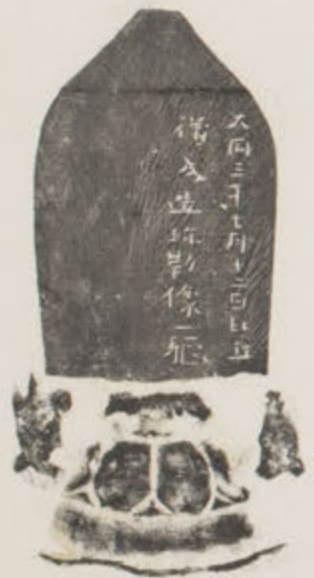 大同三年七月十二日比丘
僧成造弥勒像一